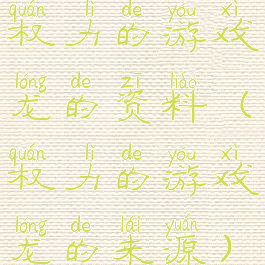 quán lì de yóu xì
权力的游戏
lóng de zī liào
龙的资料（
quán lì de yóu xì
权力的游戏
lóng de lái yuán
龙的来源）